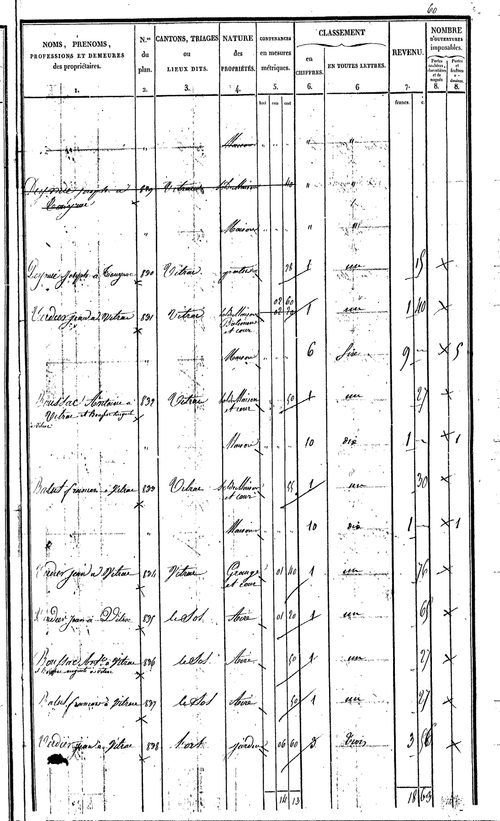 60
NOMS, PRÉNOMS,
PROFESSIONS ET DEMEURES
des propriétaires.
N.os
du
plan.
CANTONS, TRIAGES
ou
LIEUX DITS.
NATURE
des
PROPRIÉTÉS.
CONTENANCES
en mesures
métriques.
CLASSEMENT
en
CHIFFRES.
EN TOUTES LETTRES.
REVENU.
NOMBRE
D'OUVERTURES
imposables.
1. 2. 3. 4. 5. 6. 6 7. 8. 8.
francs. c.
Maison " "
829 Vitrac Sol de Maison 40 " "
Maison " "
Joseph à 830 Vitrac 28 1 un 15 x
Verdier jean à Vitrac 831 Vitrac Sol de Maison 02 60 1 un 1 40 x
Batiment 02 20
et cour
Maison 6 Six 9 — x 5
Boussac Antoine à 832 Vitrac Sol de Maison 50 1 un 27 x
Vitrac et cour
Maison 10 dix 1 — x 1
Balut francois à Vitrac 833 Vitrac Sol de Maison 55 1 un 30 x
et cour
Maison 10 dix 1 — x 1
Verdier jean à Vitrac 834 Vitrac Grange 01 40 1 un 76 x
et cour
Verdier jean à Vitrac 835 le Sol Aire 01 20 1 un 65 x
Boussac Ant.e à Vitrac 836 le Sol Aire 50 1 un 27 x
Balut francois à Vitrac 837 le Sol Aire 50 1 un 27 x
Verdier jean à Vitrac 838 l'ort jardin 06 60 3 trois 3 56 x
14 13 18 63